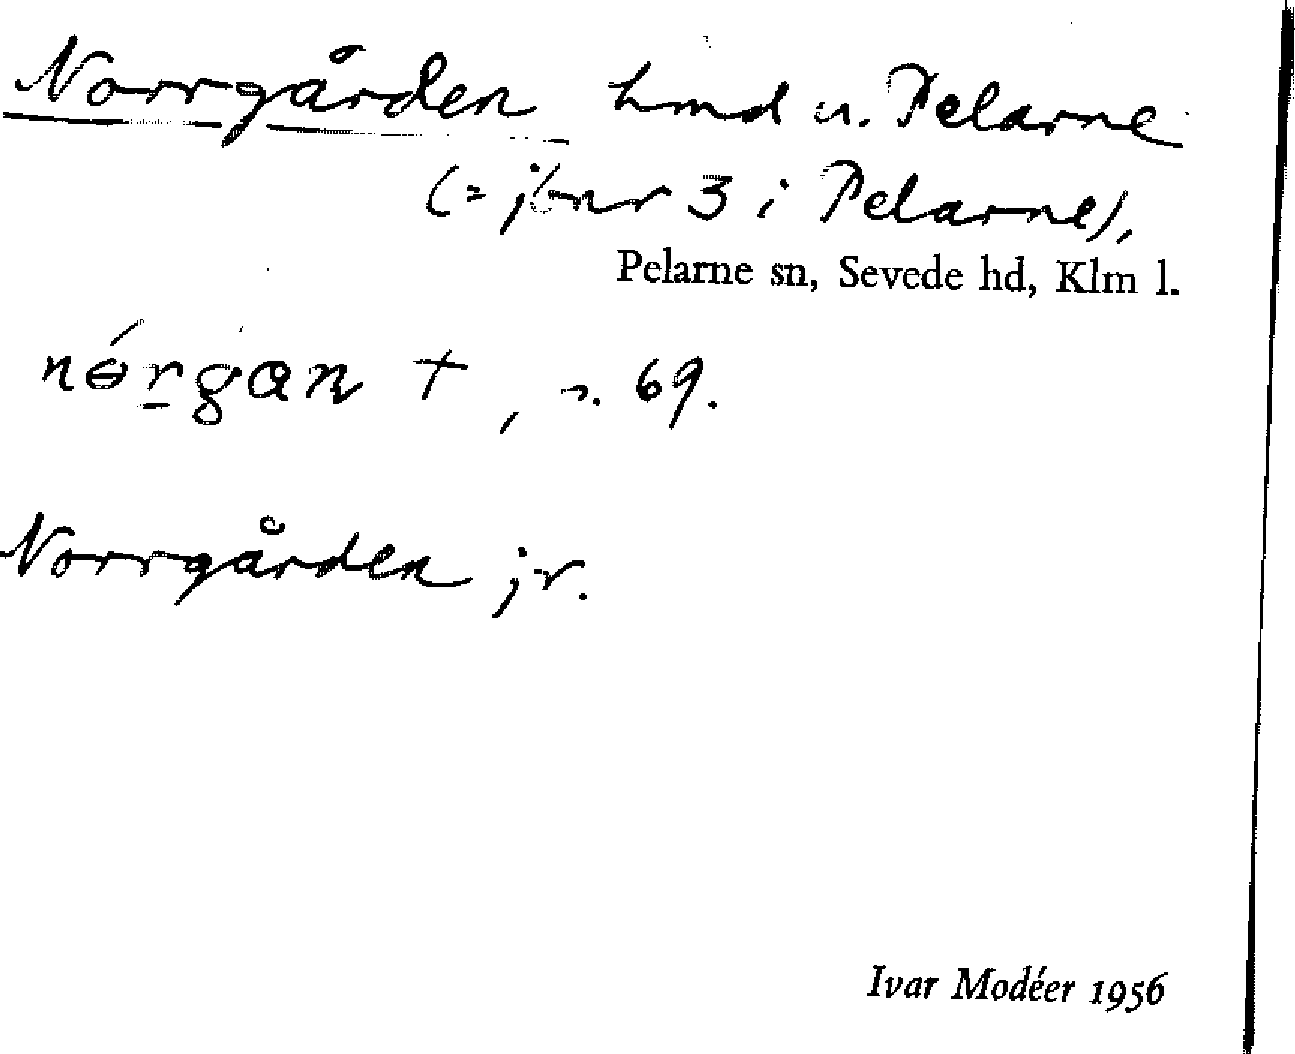 Norrgården hmd u. Pelarne
(= jbnr 3 i Pelarne),
Pelarne sn, Sevede hd, Klm l.
nórgan +, s. 69.
Norrgården jr.
Ivar Modéer 1956